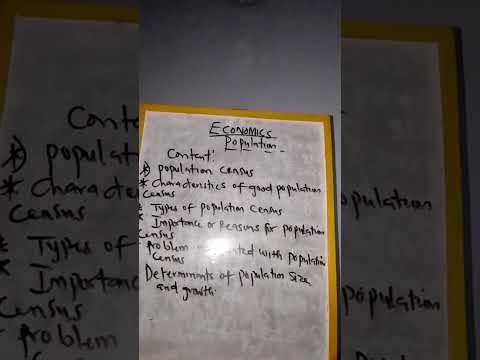 ECONOMICS
Population
Content:
* population census
* Characteristics of good population
census
* Types of population Census
* Importance or Reasons for population
census
problem with population
census
Determinants of population size
and growth.